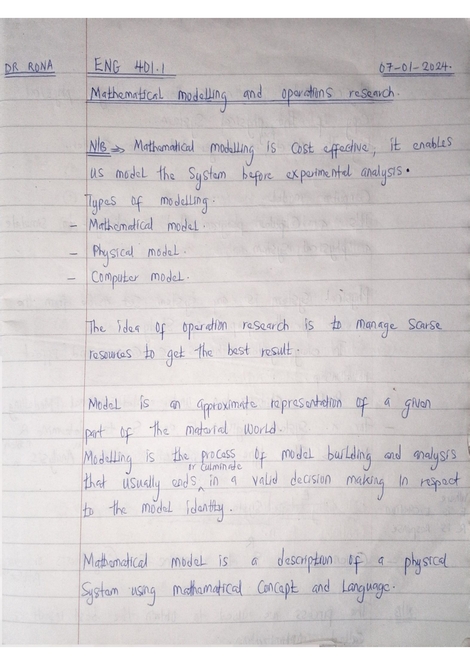 DR RONA ENG 401.1 07-01-2024.
Mathematical modelling and operations research.
N/B ⇒ Mathematical modelling is cost effective, it enables
us model the System before experimental analysis.
Types of modelling.
- Mathematical model.
- Physical model.
- Computer model.
The idea of operation research is to manage scarse
resources to get the best result.
Model is an approximate representation of a given
part of the material world.
Modelling is the process of model building and analysis
or culminate
that usually ends ^ in a valid decision making in respect
to the model identity.
Mathematical model is a description of a physical
System using mathamatical Concept and Language.